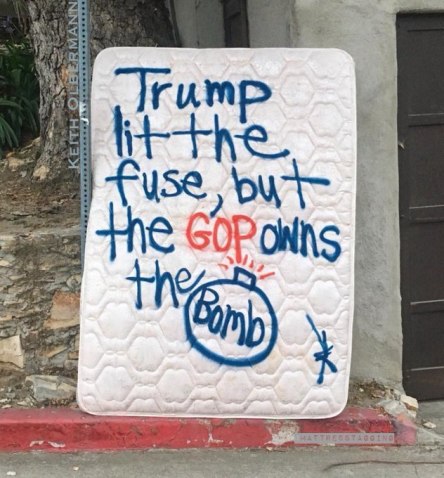 Trump
lit the
fuse, but
the GOP owns
the Bomb
KEITH OLBERMANN
MATTRESSTAGGING